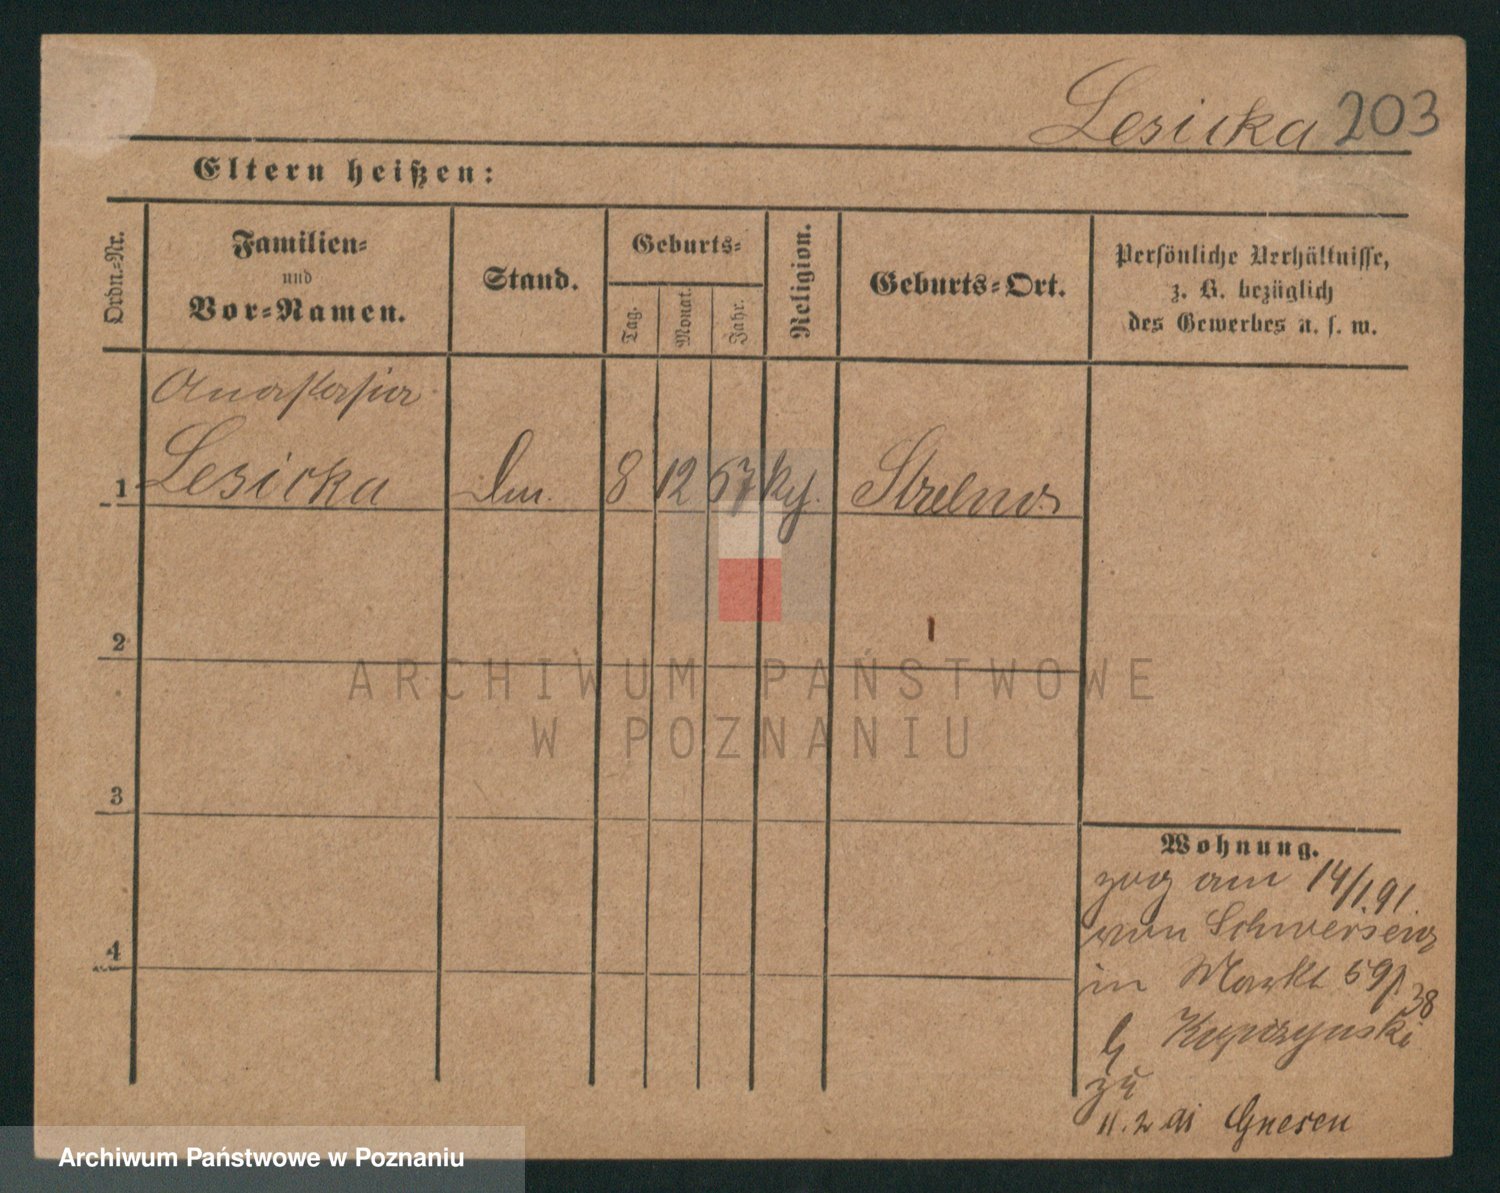 Lesicka 203
Eltern heißen:
Ordn.-Nr.
Familien-
und
Vor-Namen.
Stand.
Geburts-
Tag.
Monat.
Jahr.
Religion.
Geburts-Ort.
Persönliche Verhältnisse,
z. B. bezüglich
des Gewerbes u. s. w.
Anastasia
1 Lesicka 8 12 67 Strelno
2
3
4
Wohnung.
zog am 14/1.91.
von Schwersenz
in Markt
38
zu
Gnesen
ARCHIWUM PAŃSTWOWE
W POZNANIU
Archiwum Państwowe w Poznaniu